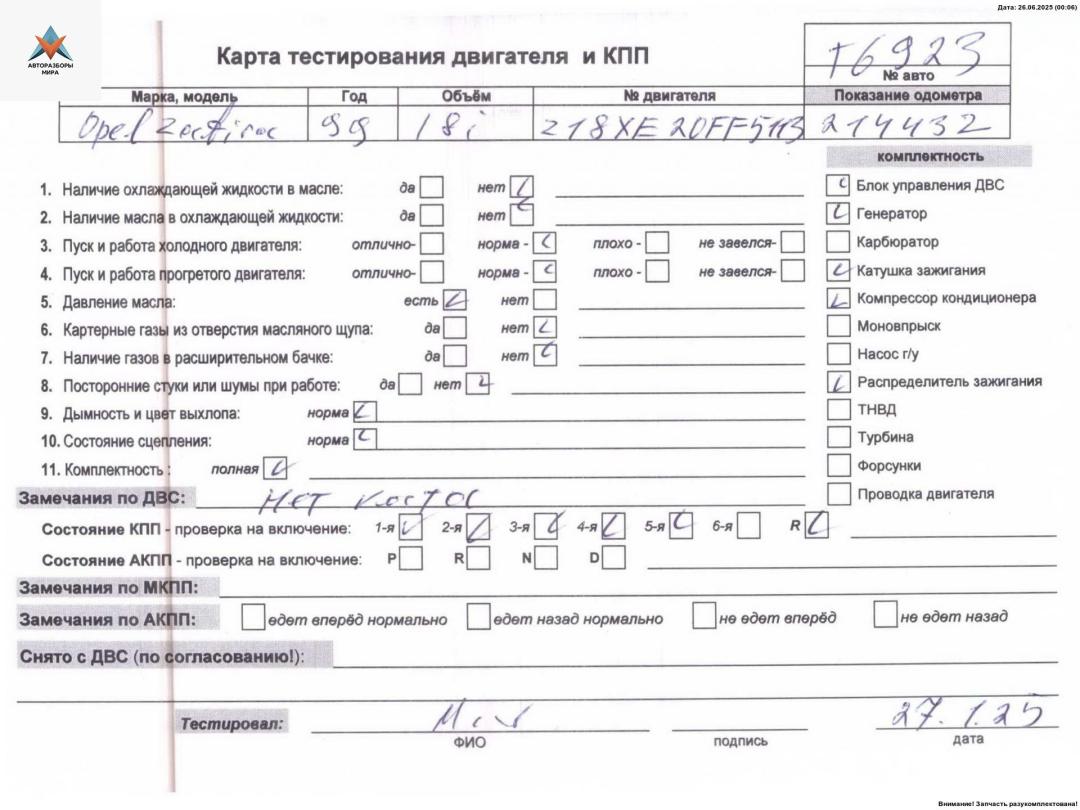 Дата: 26.06.2025 (00:06)
АВТОРАЗБОРЫ
МИРА
Карта тестирования двигателя и КПП
T6923
№ авто
Марка, модель Год Объём № двигателя Показание одометра
Opel 99 18i Z18XE 20FF5113 214432
комплектность
1. Наличие охлаждающей жидкости в масле: да нет
Блок управления ДВС
2. Наличие масла в охлаждающей жидкости: да нет
Генератор
3. Пуск и работа холодного двигателя: отлично- норма - плохо - не завелся-
Карбюратор
4. Пуск и работа прогретого двигателя: отлично- норма - плохо - не завелся-
Катушка зажигания
5. Давление масла: есть нет
Компрессор кондиционера
6. Картерные газы из отверстия масляного щупа: да нет
Моновпрыск
7. Наличие газов в расширительном бачке: да нет
Насос г/у
8. Посторонние стуки или шумы при работе: да нет
Распределитель зажигания
9. Дымность и цвет выхлопа: норма
ТНВД
10. Состояние сцепления: норма
Турбина
11. Комплектность : полная
Форсунки
Замечания по ДВС: Нет
Проводка двигателя
Состояние КПП - проверка на включение: 1-я 2-я 3-я 4-я 5-я 6-я R
Состояние АКПП - проверка на включение: P R N D
Замечания по МКПП:
Замечания по АКПП: едет вперёд нормально едет назад нормально не едет вперёд не едет назад
Снято с ДВС (по согласованию!):
Тестировал: 27.1.25
ФИО подпись дата
Внимание! Запчасть разукомплектована!